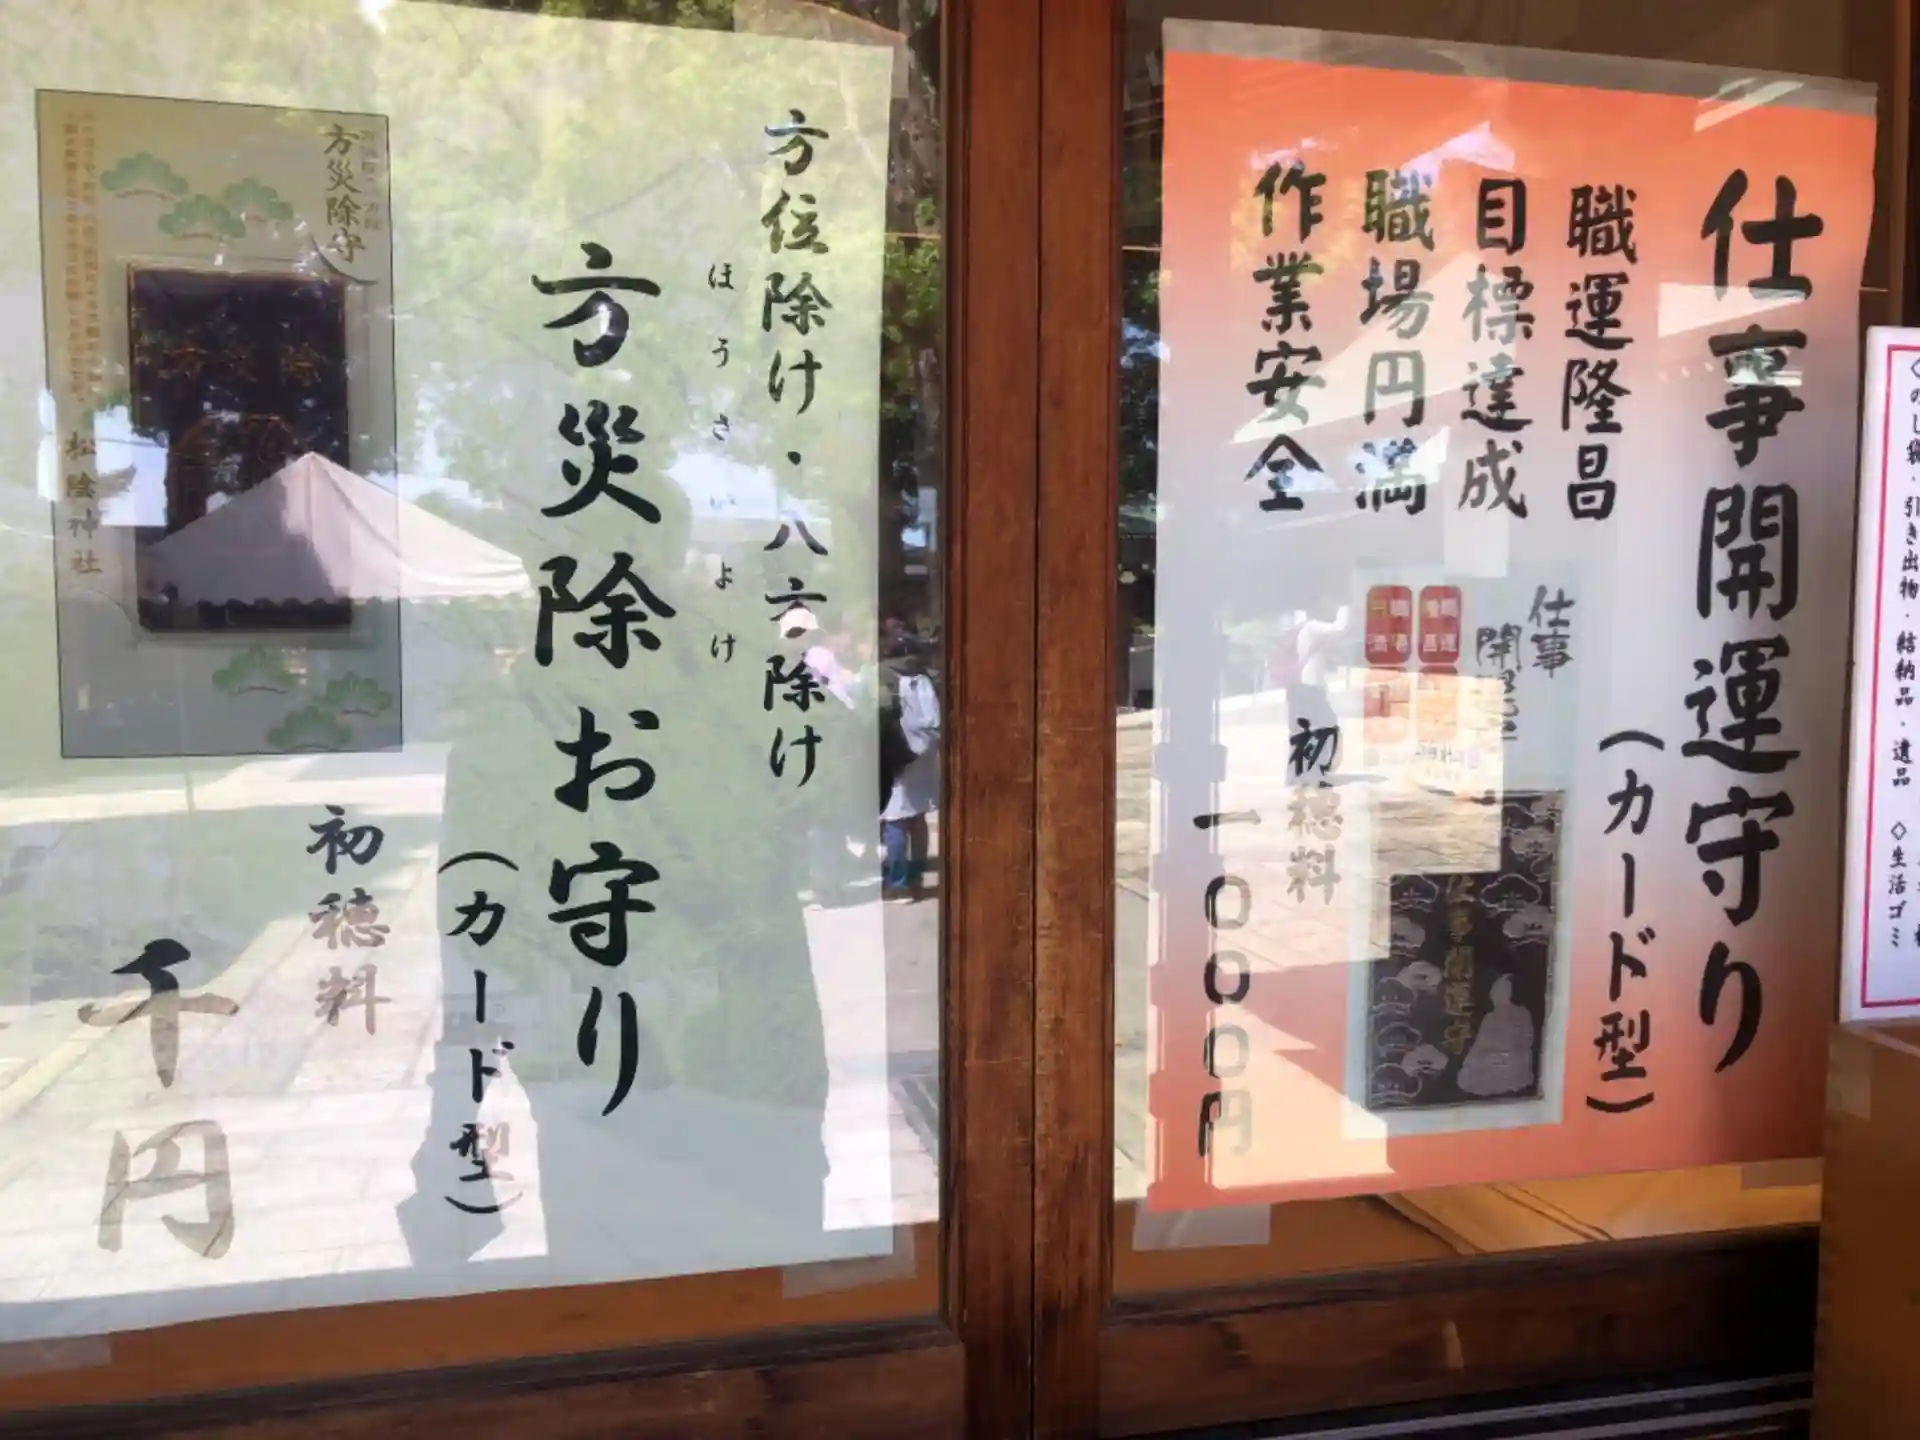 仕事開運守り
(カード型)
職運隆昌
目標達成
職場円満
作業安全
仕事
開運
初穂料
一〇〇〇円
仕事開運守
方位除け・八方除け
ほうさいよけ
方災除お守り
(カード型)
初穂料
千円
方災除守
方災除
松陰神社
くのし袋・引き出物・結納品・遺品
◇生活ゴミ